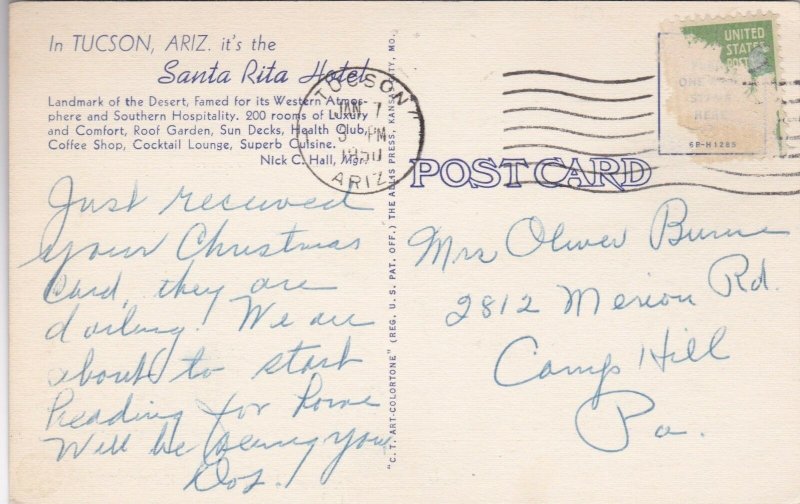 In TUCSON, ARIZ. it's the
Santa Rita Hotel
Landmark of the Desert, Famed for its Western Atmos-
phere and Southern Hospitality. 200 rooms of Luxury
and Comfort, Roof Garden, Sun Decks, Health Club,
Coffee Shop, Cocktail Lounge, Superb Cuisine.
Nick C. Hall, Mgr.
TUCSON
JAN 7
PM
1950
ARIZ.
UNITED
STATES
POST
ONE
STAMP
HERE
6P-H1285
POST CARD
"C. T. ART-COLORTONE" (REG. U. S. PAT. OFF.) THE PRESS, KANSAS CITY, MO.
Just received
your Christmas
Card, they are
darling. We are
about to start
heading for home
Will be seeing you
Dos.
Mrs Oliver
2812 Merion Rd.
Camp Hill
Pa.